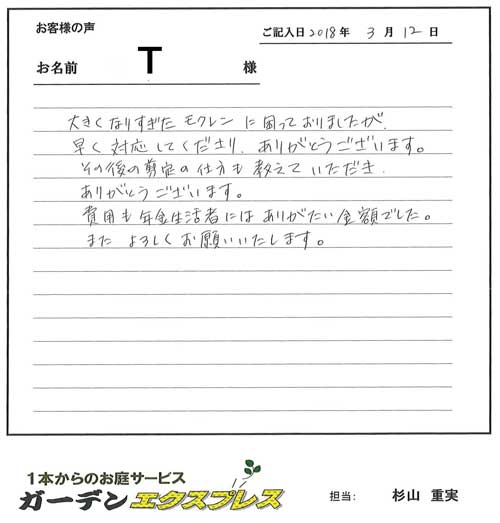 お客様の声
ご記入日 2018年 3月 12日
お名前 T 様
大きくなりすぎた モクレン に 困っておりましたが、
早く 対応 して くださり、ありがとうございます。
その後の剪定の仕方も 教えて いただき、
ありがとうございます。
費用も 年金生活者には ありがたい 金額でした。
また よろしく お願いいたします。
1本からのお庭サービス
ガーデン エクスプレス
担当: 杉山 重実